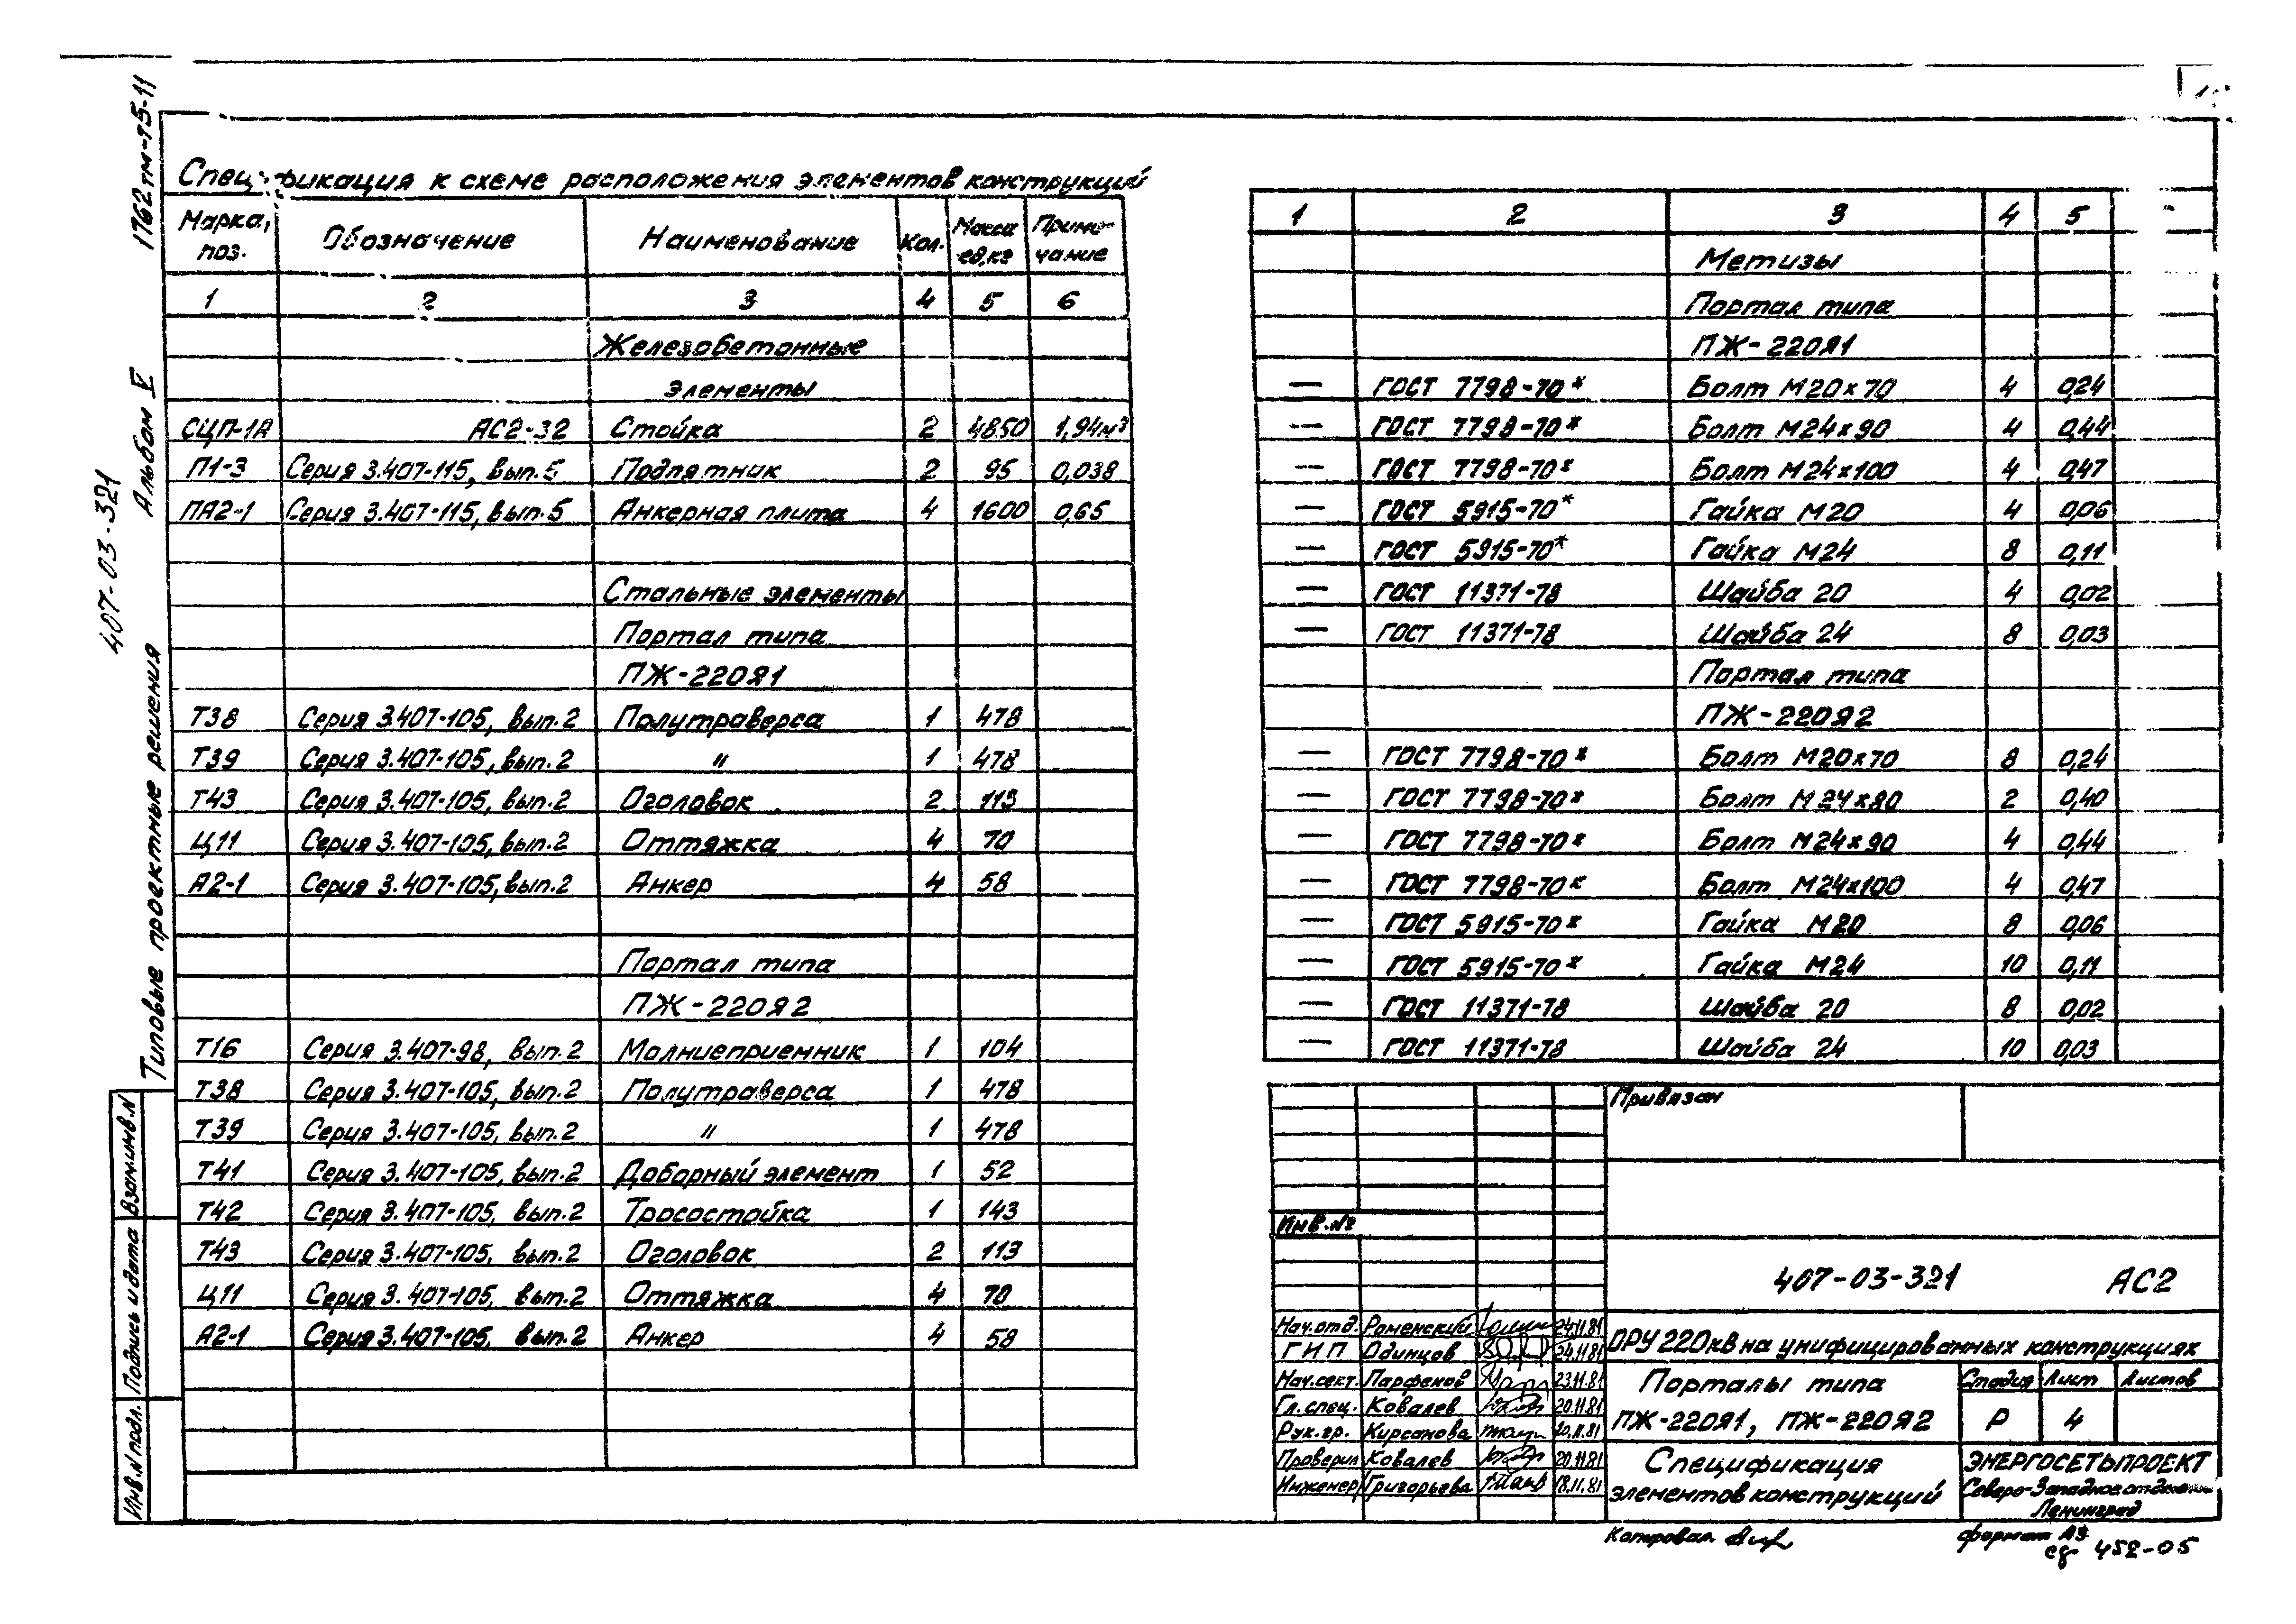 1762тм-т5-11
Альбом V
407-03-321
Типовые проектные решения
Взам.инв.N
Подпись и дата
Инв.N подл.
Спецификация к схеме расположения элементов конструкций
Марка, поз. Обозначение Наименование Кол. Масса ед,кг Примечание
1 2 3 4 5 6
Железобетонные
элементы
СЦП-1А АС2-32 Стойка 2 4850 1,94м³
П1-3 Серия 3.407-115, вып.5 Подпятник 2 95 0,038
ПА2-1 Серия 3.407-115, вып.5 Анкерная плита 4 1600 0,65
Стальные элементы
Портал типа
ПЖ-220Я1
Т38 Серия 3.407-105, вып.2 Полутраверса 1 478
Т39 Серия 3.407-105, вып.2 " 1 478
Т43 Серия 3.407-105, вып.2 Оголовок 2 113
Ц11 Серия 3.407-105, вып.2 Оттяжка 4 70
А2-1 Серия 3.407-105, вып.2 Анкер 4 58
Портал типа
ПЖ-220Я2
Т16 Серия 3.407-98, вып.2 Молниеприемник 1 104
Т38 Серия 3.407-105, вып.2 Полутраверса 1 478
Т39 Серия 3.407-105, вып.2 " 1 478
Т41 Серия 3.407-105, вып.2 Доборный элемент 1 52
Т42 Серия 3.407-105, вып.2 Тросостойка 1 143
Т43 Серия 3.407-105, вып.2 Оголовок 2 113
Ц11 Серия 3.407-105, вып.2 Оттяжка 4 70
А2-1 Серия 3.407-105, вып.2 Анкер 4 58
1 2 3 4 5
Метизы
Портал типа
ПЖ-220Я1
— ГОСТ 7798-70* Болт М20х70 4 0,24
— ГОСТ 7798-70* Болт М24х90 4 0,44
— ГОСТ 7798-70* Болт М24х100 4 0,47
— ГОСТ 5915-70* Гайка М20 4 0,06
— ГОСТ 5915-70* Гайка М24 8 0,11
— ГОСТ 11371-78 Шайба 20 4 0,02
— ГОСТ 11371-78 Шайба 24 8 0,03
Портал типа
ПЖ-220Я2
— ГОСТ 7798-70* Болт М20х70 8 0,24
— ГОСТ 7798-70* Болт М24х80 2 0,40
— ГОСТ 7798-70* Болт М24х90 4 0,44
— ГОСТ 7798-70* Болт М24х100 4 0,47
— ГОСТ 5915-70* Гайка М20 8 0,06
— ГОСТ 5915-70* Гайка М24 10 0,11
— ГОСТ 11371-78 Шайба 20 8 0,02
— ГОСТ 11371-78 Шайба 24 10 0,03
Привязан
Инв.№
407-03-321 АС2
Нач.отд. Роменский 24.11.81
ГИП Одинцов 24.11.81
Нач.сект. Парфенов 23.11.81
Гл.спец. Ковалев 20.11.81
Рук.гр. Кирсанова 20.11.81
Проверил Ковалев 20.11.81
Инженер Григорьева 18.11.81
ОРУ 220кВ на унифицированных конструкциях
Порталы типа
ПЖ-220Я1, ПЖ-220Я2
Стадия Лист Листов
Р 4
Спецификация
элементов конструкций
ЭНЕРГОСЕТЬПРОЕКТ
Северо-Западное отделение
Ленинград
Копировал
формат А3
сф 452-05